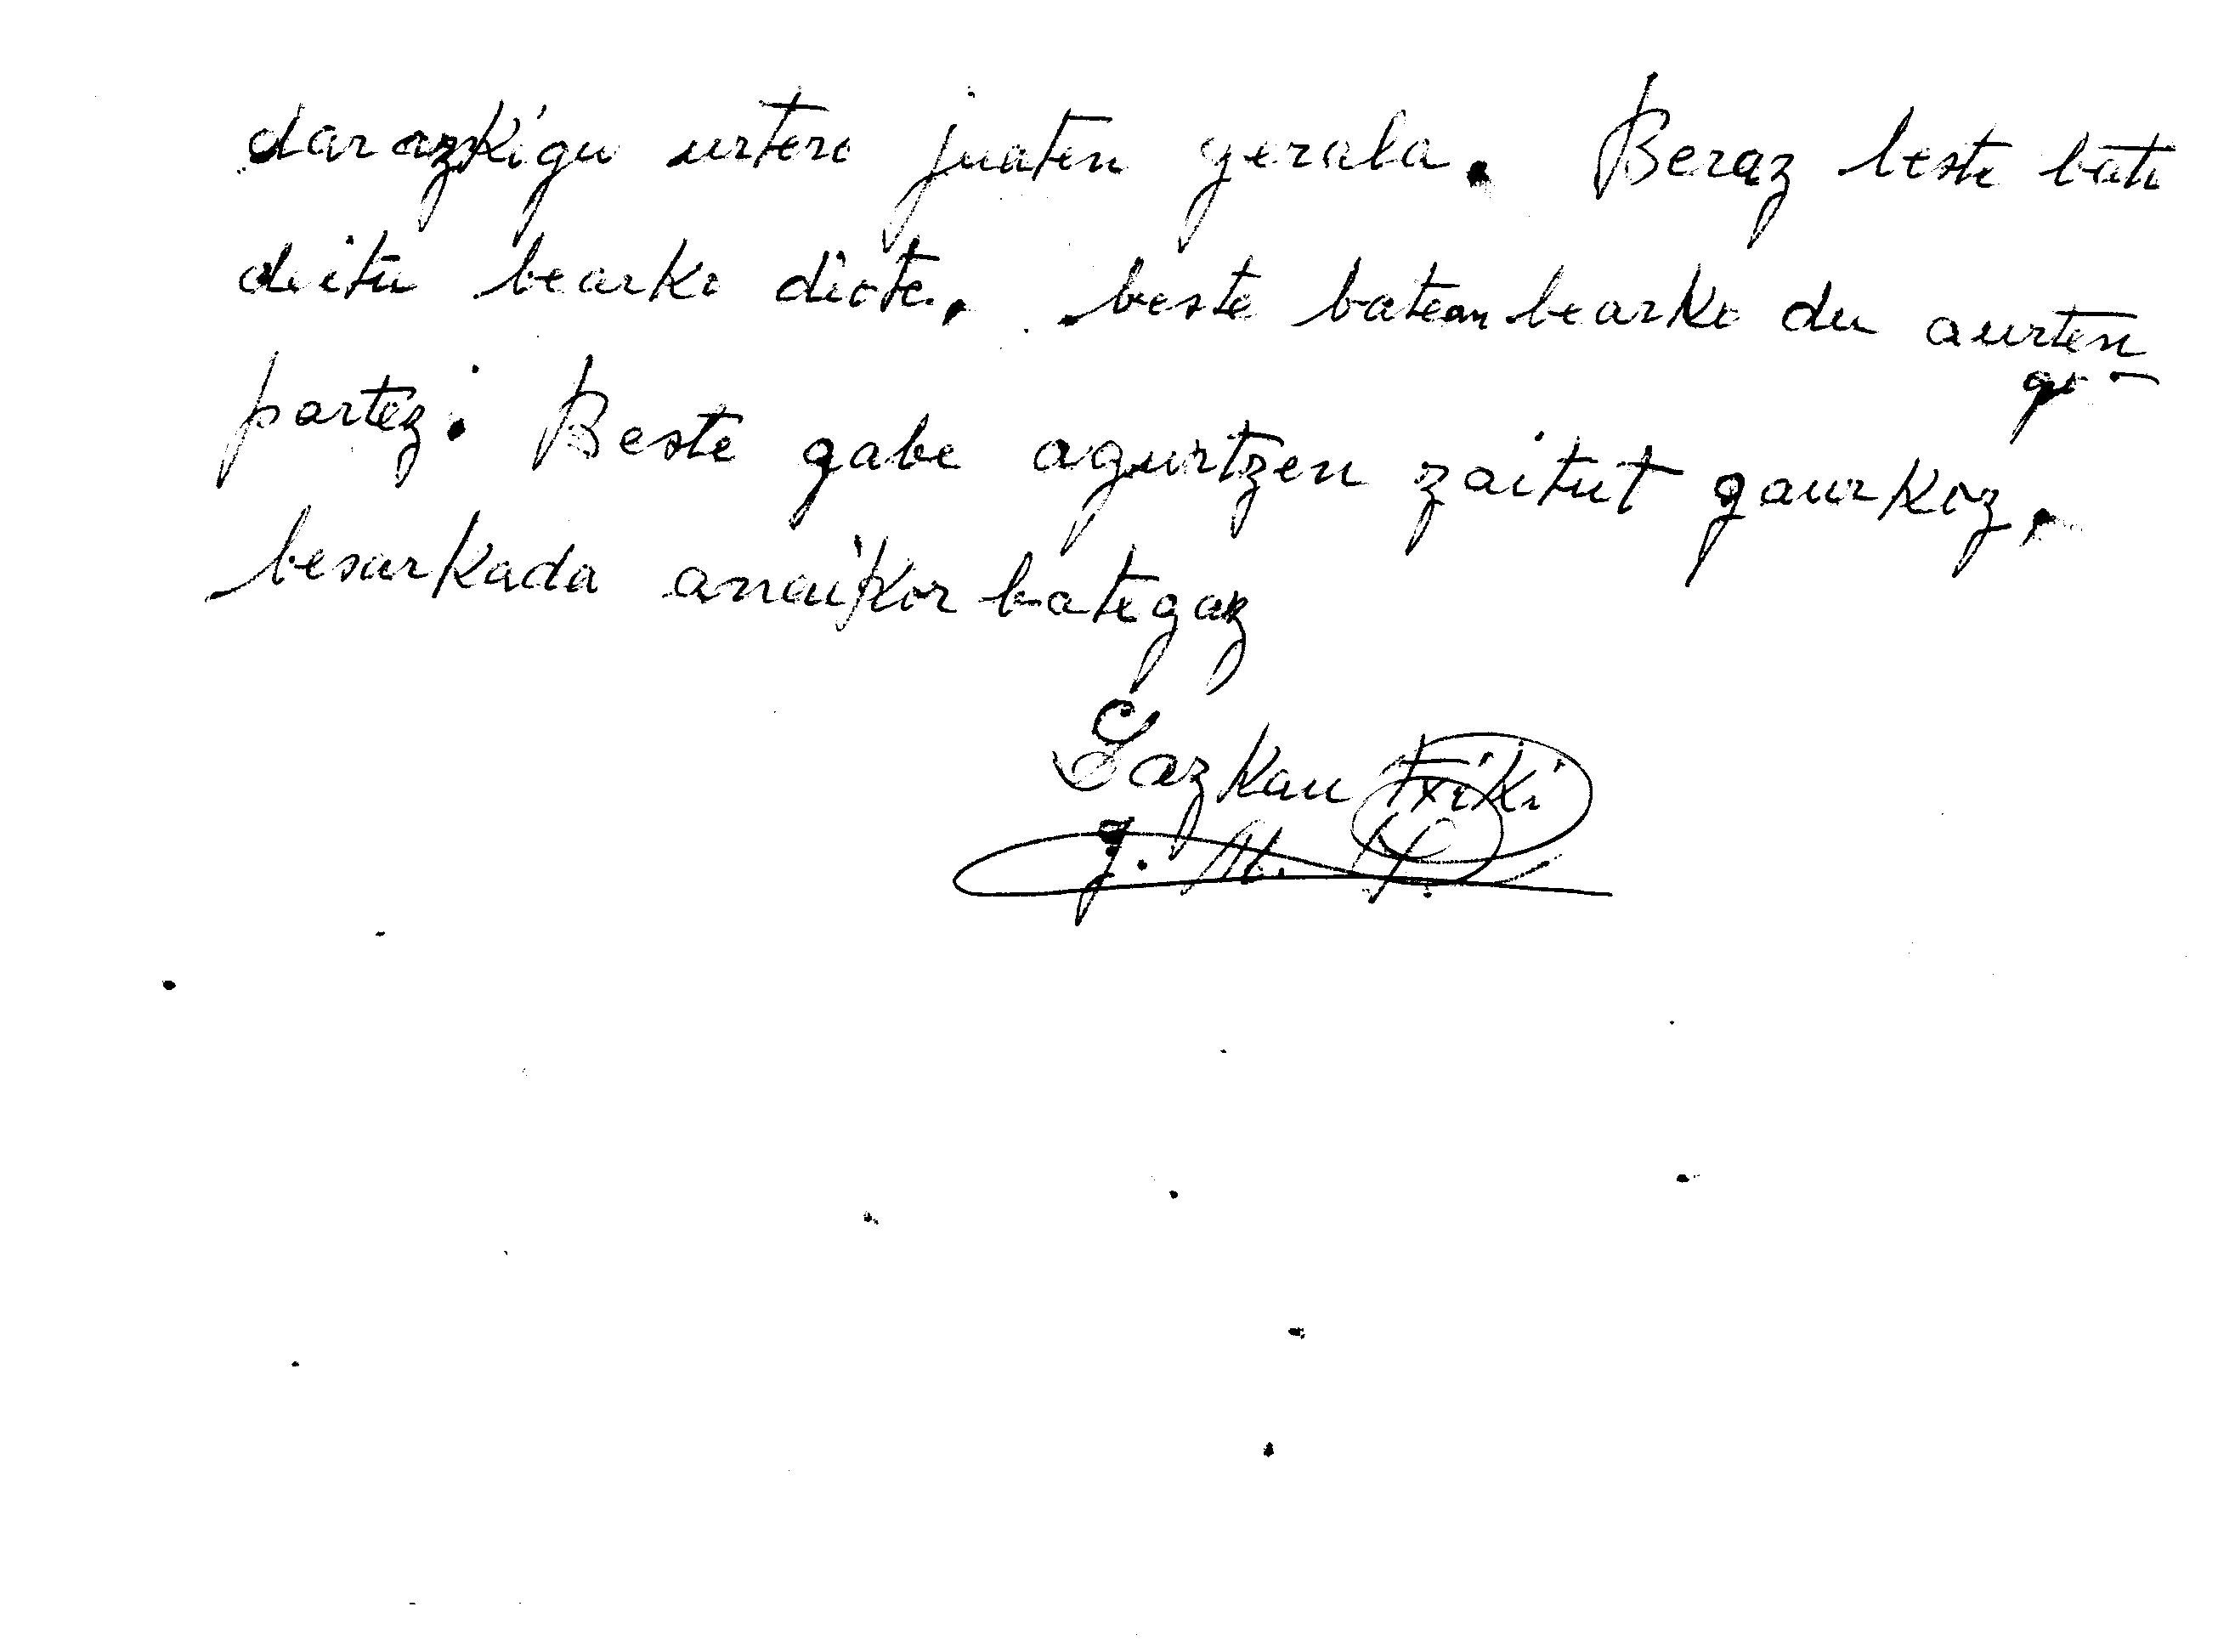 darazkigu urtero juaten gerala. Beraz beste bati
deitu bearko diote, beste batean bearko du aurten
gu
partez. Beste gabe agurtzen zaitut gaurkoz,
besarkada anaikor bategaz
Lazkau Txiki
J. M.